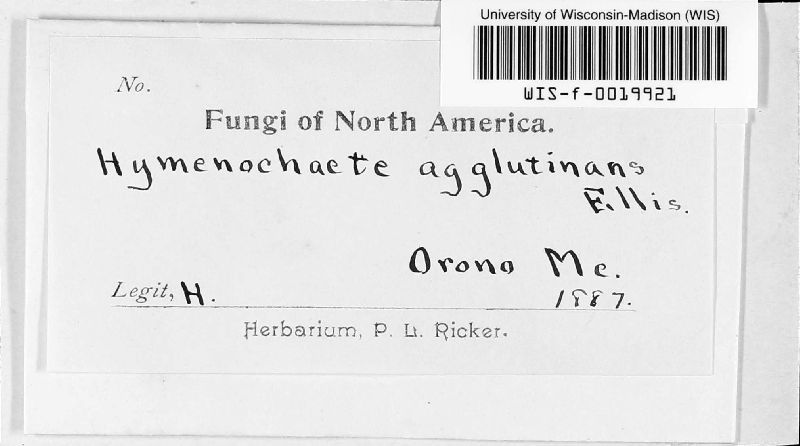 University of Wisconsin-Madison (WIS)
WIS-f-0019921
No.
Fungi of North America.
Hymenochaete agglutinans
Ellis.
Orono Me.
Legit, H. 1887.
Herbarium, P. L. Ricker.